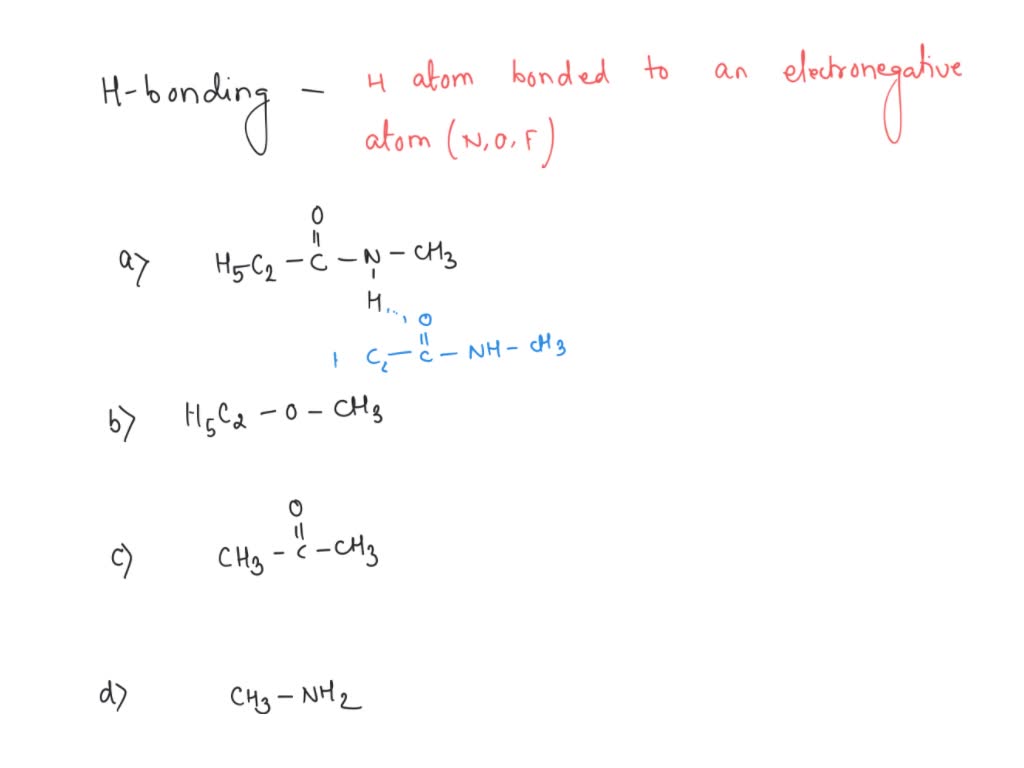 H-bonding - H atom bonded to an electronegative
atom (N, O, F)
a) H5C2 - C - N - CH3
O
H
O
C2 - C - NH - CH3
b) H5C2 - O - CH3
O
c) CH3 - C - CH3
d) CH3 - NH2